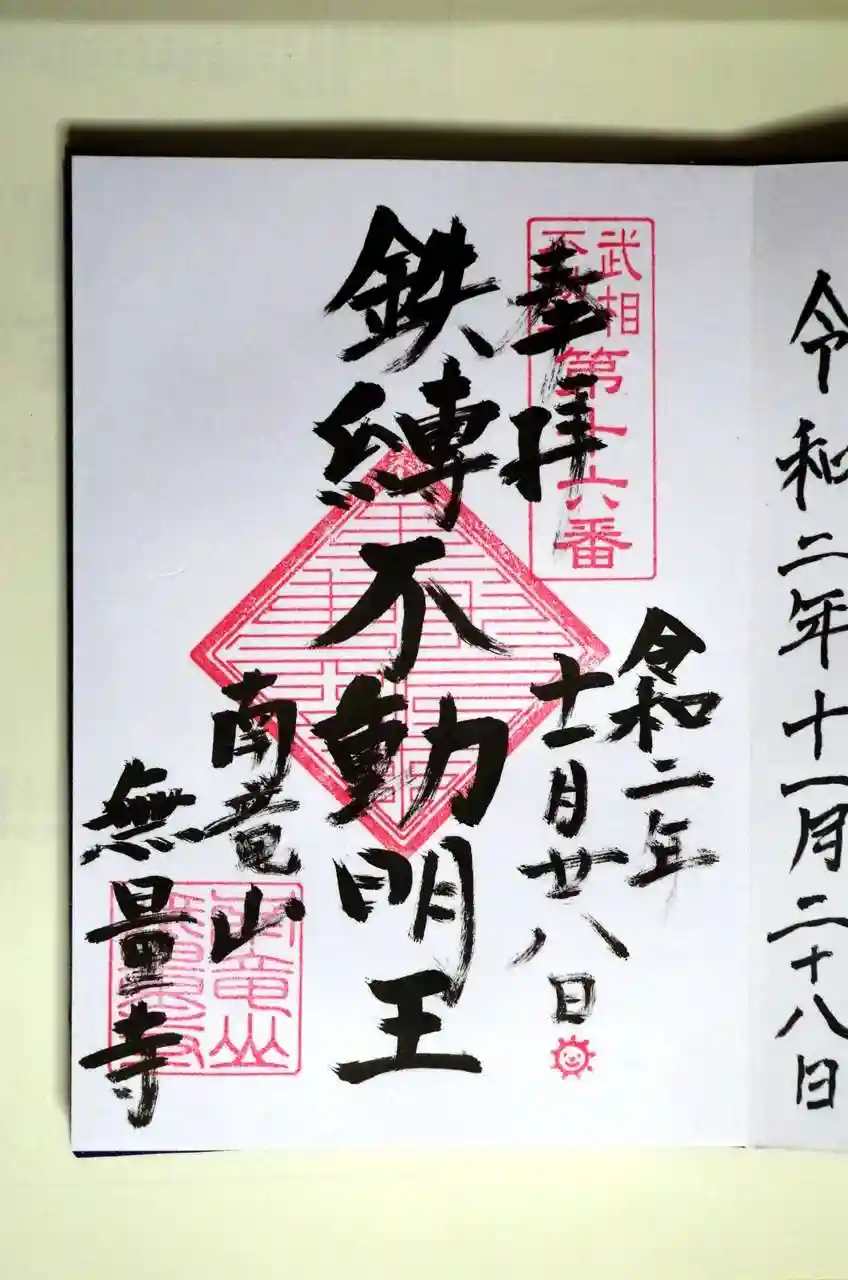 令和二年十一月二十八日
武相
第十六番
奉拝
令和二年
十一月廿八日
鉄縛不動明王
南竜山
無量寺
南竜山